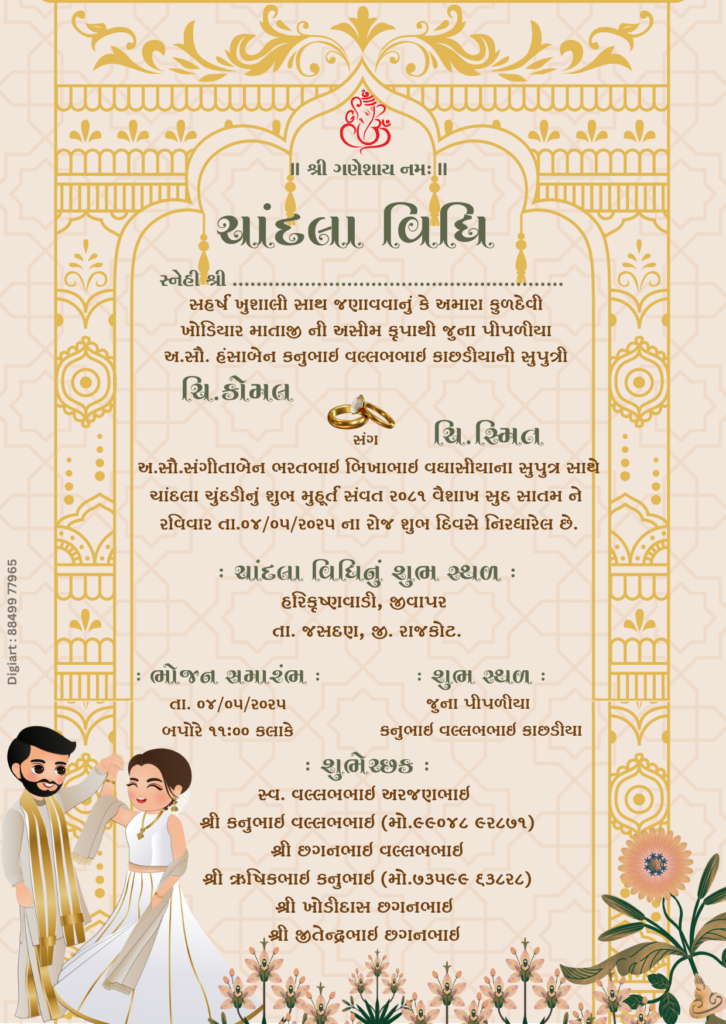 ॥ શ્રી ગણેશાય નમઃ ॥
ચાંદલા વિધિ
સ્નેહી શ્રી ............................................................
સહર્ષ ખુશાલી સાથ જણાવવાનું કે અમારા કુળદેવી
ખોડિયાર માતાજી ની અસીમ કૃપાથી જુના પીપળીયા
અ.સૌ. હંસાબેન કનુભાઇ વલ્લભભાઇ કાછડીયાની સુપુત્રી
ચિ.કોમલ
સંગ
ચિ.સ્મિત
અ.સૌ.સંગીતાબેન ભરતભાઇ ભિખાભાઇ વઘાસીયાના સુપુત્ર સાથે
ચાંદલા ચુંદડીનું શુભ મુહૂર્ત સંવત ૨૦૮૧ વૈશાખ સુદ સાતમ ને
રવિવાર તા.૦૪/૦૫/૨૦૨૫ ના રોજ શુભ દિવસે નિરધારેલ છે.
: ચાંદલા વિધિનું શુભ સ્થળ :
હરિકૃષ્ણવાડી, જીવાપર
તા. જસદણ, જી. રાજકોટ.
: ભોજન સમારંભ :
તા. ૦૪/૦૫/૨૦૨૫
બપોરે ૧૧:૦૦ કલાકે
: શુભ સ્થળ :
જુના પીપળીયા
કનુભાઇ વલ્લભભાઇ કાછડીયા
: શુભેચ્છક :
સ્વ. વલ્લભભાઇ અરજણભાઇ
શ્રી કનુભાઇ વલ્લભભાઇ (મો.૯૯૦૪૮ ૯૨૮૭૧)
શ્રી છગનભાઇ વલ્લભભાઇ
શ્રી ઋષિકભાઇ કનુભાઇ (મો.૭૩૫૯૯ ૬૩૮૨૮)
શ્રી ખોડીદાસ છગનભાઇ
શ્રી જીતેન્દ્રભાઇ છગનભાઇ
Digiart : 88499 77965